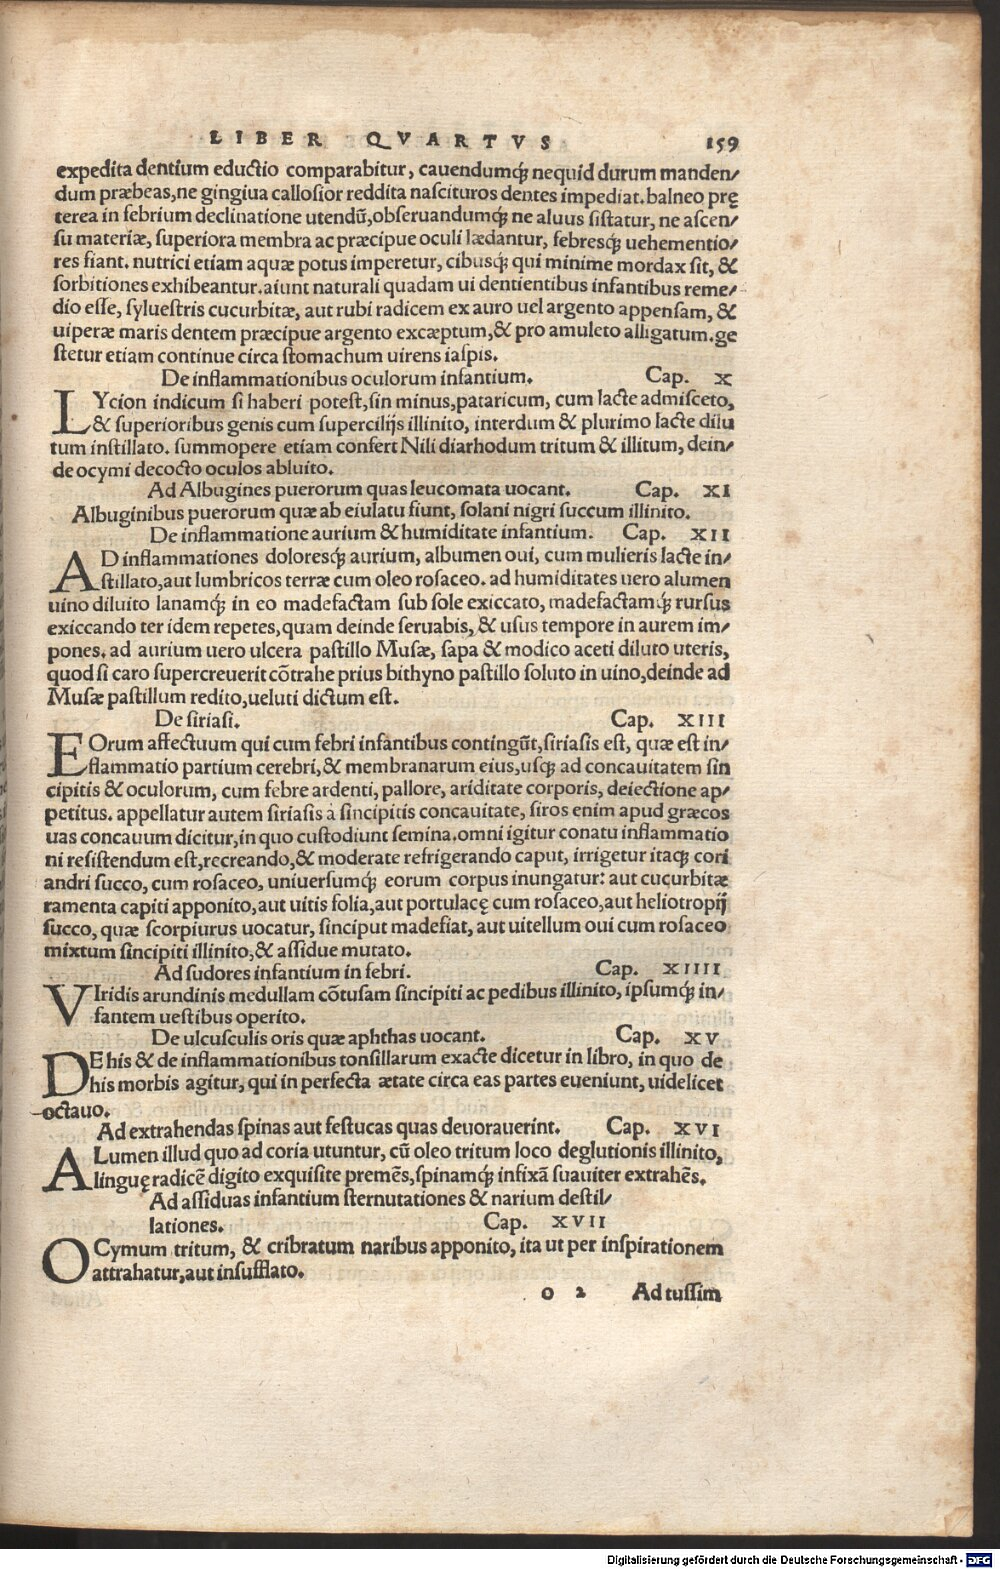 LIBER QVARTVS 159
expedita dentium eductio comparabitur, cauendumq́ꝫ nequid durum manden/
dum præbeas,ne gingiua callosior reddita nascituros dentes impediat. balneo prę
terea in febrium declinatione utendũ,obseruandumq́ꝫ ne aluus sistatur, ne ascen/
su materiæ, superiora membra ac præcipue oculi lædantur, febresq́ꝫ uehementio/
res fiant. nutrici etiam aquæ potus imperetur, cibusq́ꝫ qui minime mordax sit, &
sorbitiones exhibeantur.aiunt naturali quadam ui dentientibus infantibus reme/
dio esse, syluestris cucurbitæ, aut rubi radicem ex auro uel argento appensam, &
uiperæ maris dentem præcipue argento excæptum,& pro amuleto alligatum.ge
stetur etiam continue circa stomachum uirens iaspis.
De inflammationibus oculorum infantium. Cap. X
LYcion indicum si haberi potest,sin minus,pataricum, cum lacte admisceto,
& superioribus genis cum supercilijs illinito, interdum & plurimo lacte dilu
tum instillato. summopere etiam confert Nili diarhodum tritum & illitum, dein/
de ocymi decocto oculos abluito.
Ad Albugines puerorum quas leucomata uocant. Cap. XI
Albuginibus puerorum quæ ab eiulatu fiunt, solani nigri succum illinito.
De inflammatione aurium & humiditate infantium. Cap. XII
AD inflammationes doloresq́ꝫ aurium, albumen oui, cum mulieris lacte in/
stillato,aut lumbricos terræ cum oleo rosaceo. ad humiditates uero alumen
uino diluito lanamq́ꝫ in eo madefactam sub sole exiccato, madefactamq́ꝫ rursus
exiccando ter idem repetes,quam deinde seruabis, & usus tempore in aurem im/
pones. ad aurium uero ulcera pastillo Musæ, sapa & modico aceti diluto uteris,
quod si caro supercreuerit cõtrahe prius bithyno pastillo soluto in uino,deinde ad
Musæ pastillum redito,ueluti dictum est.
De siriasi. Cap. XIII
EOrum affectuum qui cum febri infantibus contingũt,siriasis est, quæ est in/
flammatio partium cerebri,& membranarum eius,usq́ꝫ ad concauitatem sin
cipitis & oculorum, cum febre ardenti, pallore, ariditate corporis, deiectione ap/
petitus. appellatur autem siriasis à sincipitis concauitate, siros enim apud græcos
uas concauum dicitur,in quo custodiunt semina.omni igitur conatu inflammatio
ni resistendum est,recreando,& moderate refrigerando caput, irrigetur itaq́ꝫ cori
andri succo, cum rosaceo, uniuersumq́ꝫ eorum corpus inungatur: aut cucurbitæ
ramenta capiti apponito,aut uitis folia,aut portulacę cum rosaceo,aut heliotropij
succo, quæ scorpiurus uocatur, sinciput madefiat, aut uitellum oui cum rosaceo
mixtum sincipiti illinito,& assidue mutato.
Ad sudores infantium in febri. Cap. XIIII
VIridis arundinis medullam cõtusam sincipiti ac pedibus illinito, ipsumq́ꝫ in/
fantem uestibus operito.
De ulcusculis oris quæ aphthas uocant. Cap. XV
DE his & de inflammationibus tonsillarum exacte dicetur in libro, in quo de
his morbis agitur, qui in perfecta ætate circa eas partes eueniunt, uidelicet
octauo.
Ad extrahendas spinas aut festucas quas deuorauerint. Cap. XVI
ALumen illud quo ad coria utuntur, cũ oleo tritum loco deglutionis illinito,
linguę radicẽ digito exquisite premẽs,spinamq́ꝫ infixã suauiter extrahẽs.
Ad assiduas infantium sternutationes & narium destil/
lationes. Cap. XVII
OCymum tritum, & cribratum naribus apponito, ita ut per inspirationem
attrahatur,aut insufflato.
o 2 Ad tussim
Digitalisierung gefördert durch die Deutsche Forschungsgemeinschaft - DFG